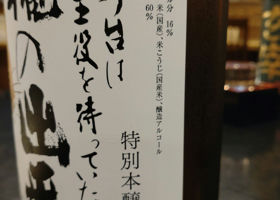 分 16%
米(国産)、米こうじ(国産米)、醸造アルコール
60%
今日は
主役を待っていた
俺の出番
特別本醸